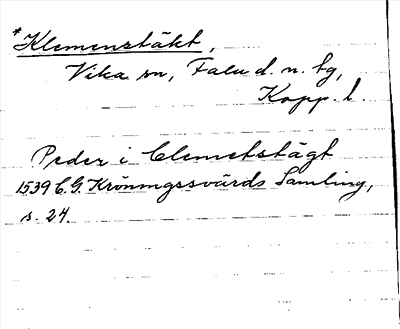 *Klemenstäkt,
Vika sn, Falu d. n. tg,
Kopp. l
Peder i Clemetstägt
1539 C.G. Kröningssvärds Samling,
s. 24.